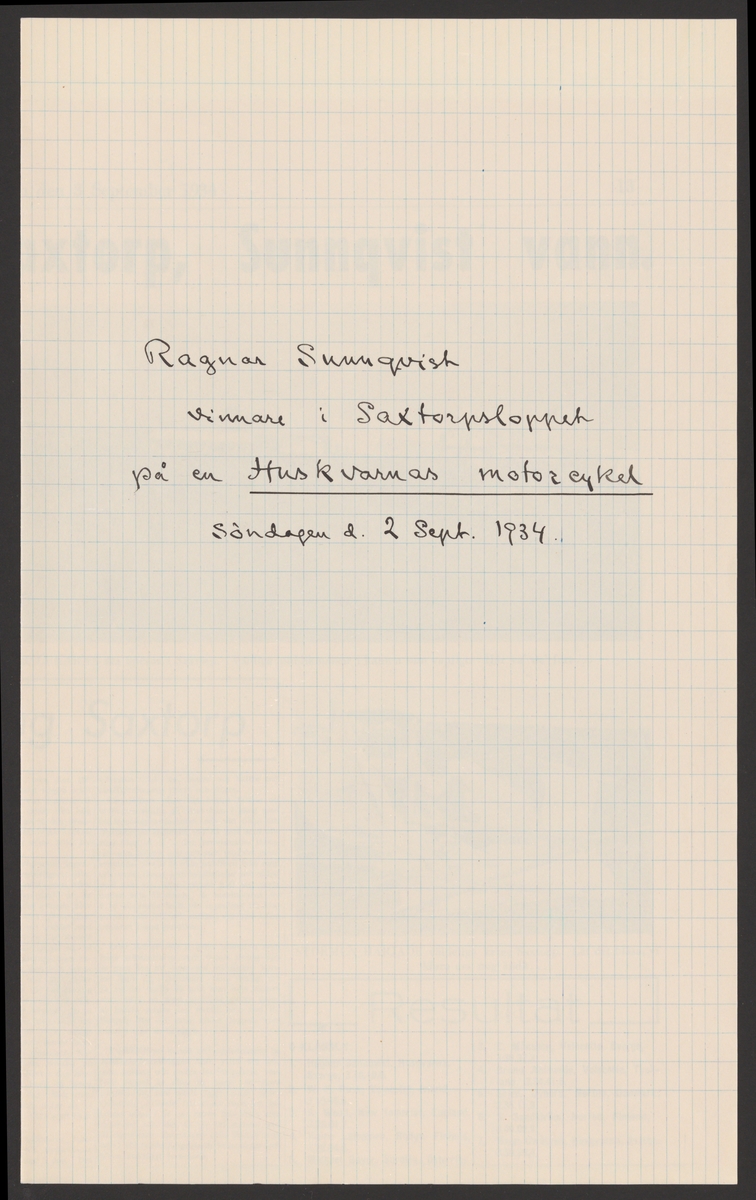 Ragnar Sunnqvist
vinnare i Saxtorpsloppet
på en Huskvarnas motorcykel
Söndagen d. 2 Sept. 1934.